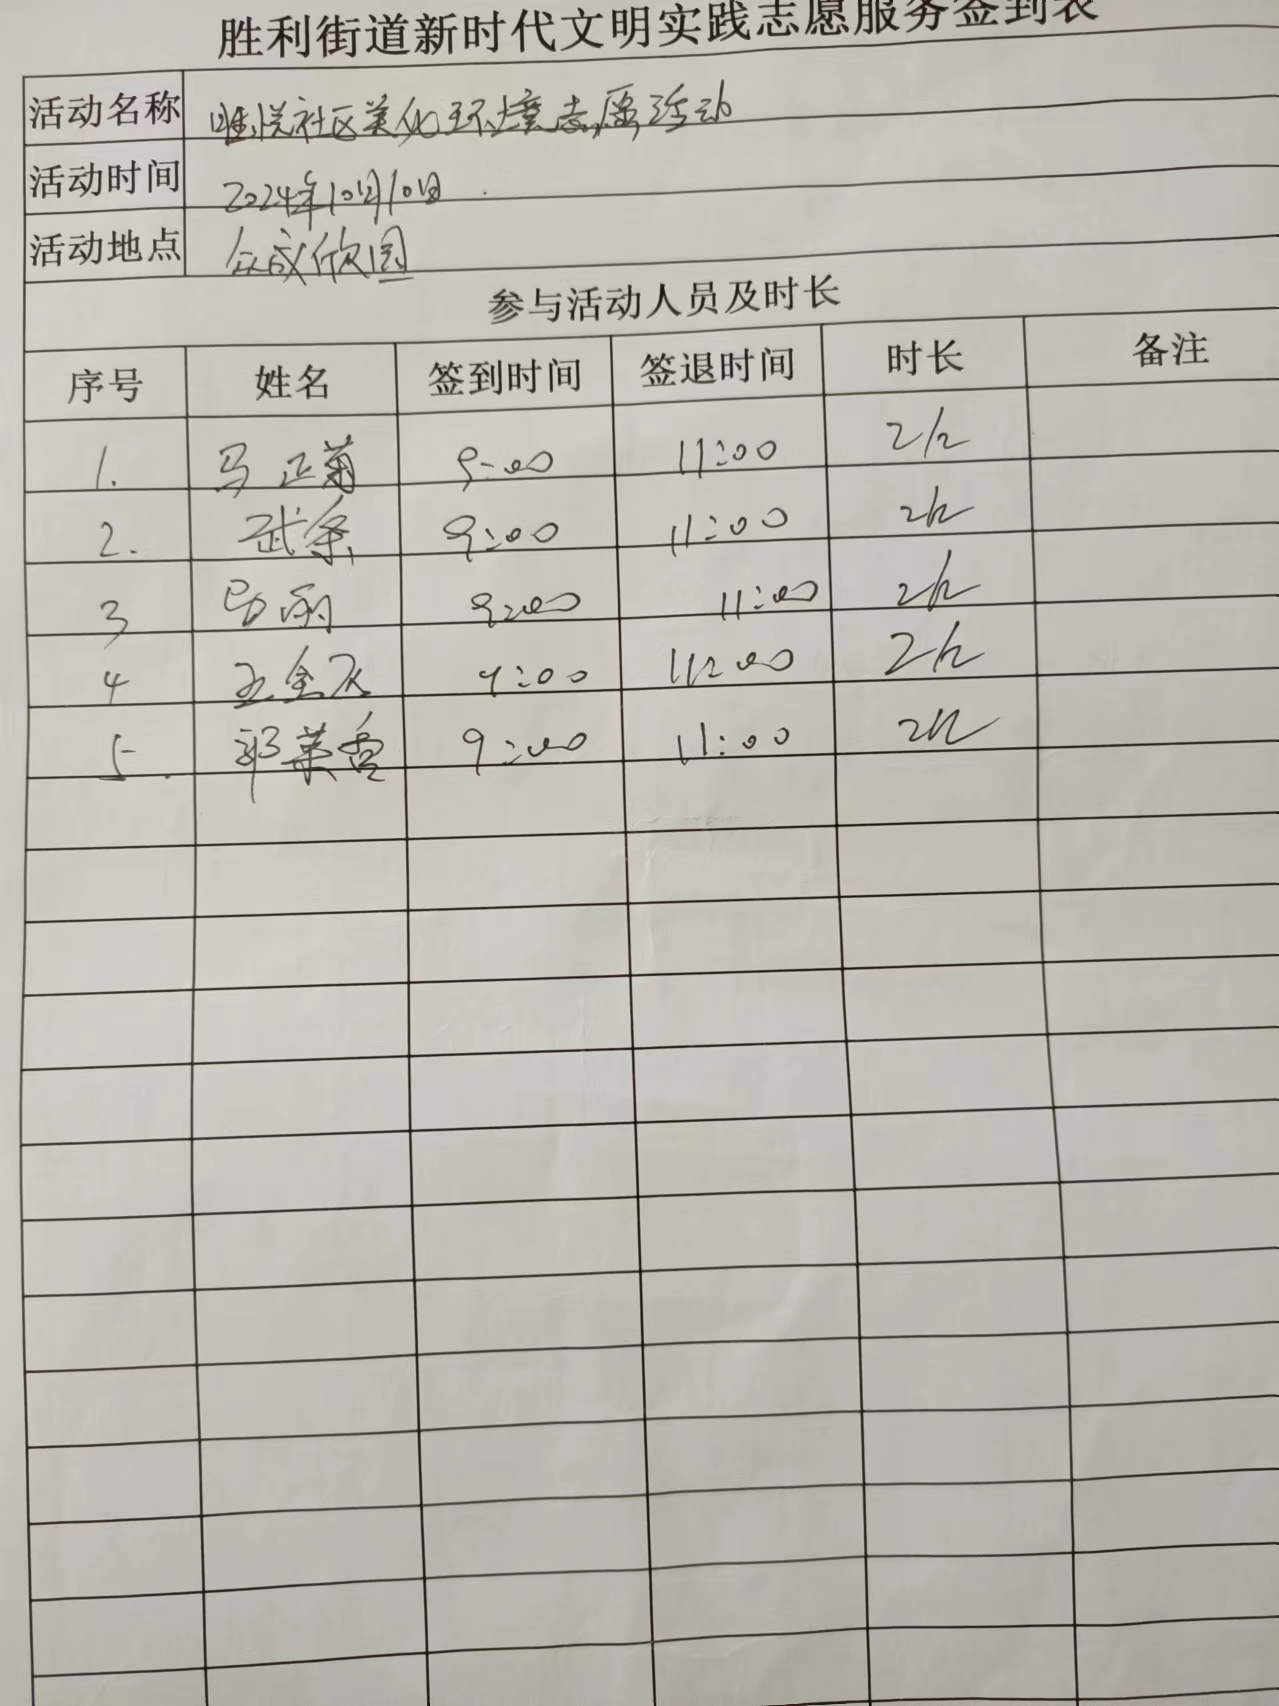 胜利街道新时代文明实践志愿服务签到表
活动名称 唯悦社区美化环境志愿活动
活动时间 2024年10月10日
活动地点 众成欣园
参与活动人员及时长
序号 姓名 签到时间 签退时间 时长 备注
1. 马正菊 9:00 11:00 2h
2. 武条 9:00 11:00 2h
3 马丽 9:00 11:00 2h
4 王金 9:00 11:00 2h
5. 郭英香 9:00 11:00 2h